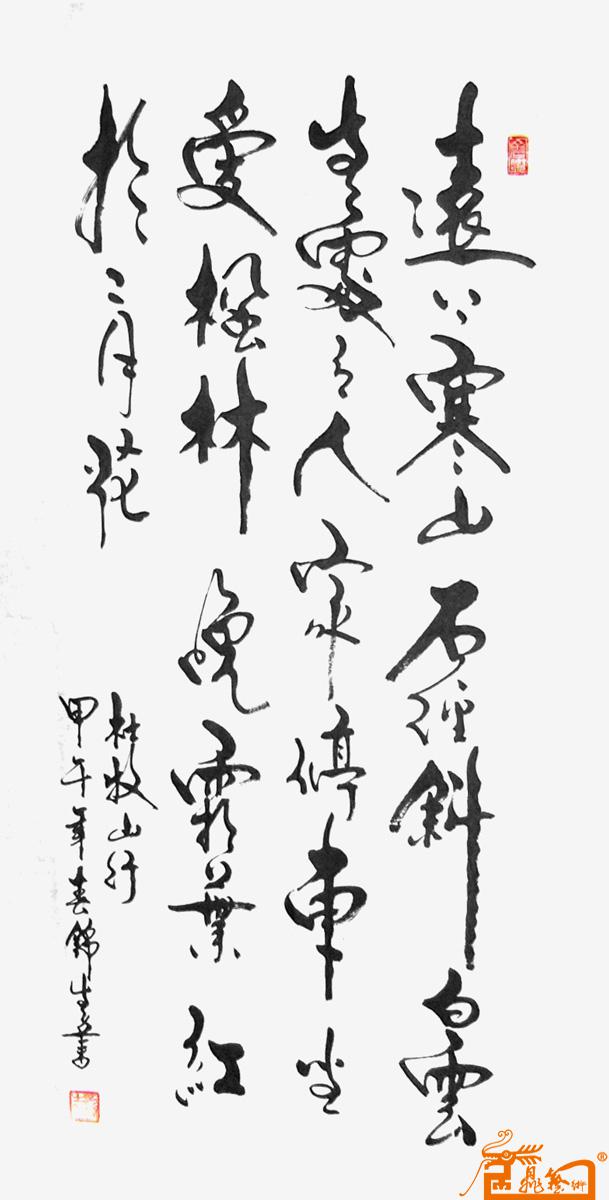 遠上寒山石徑斜白雲
生處有人家停車坐
愛楓林晚霜葉紅
於二月花
杜牧山行
甲午年春錦生業